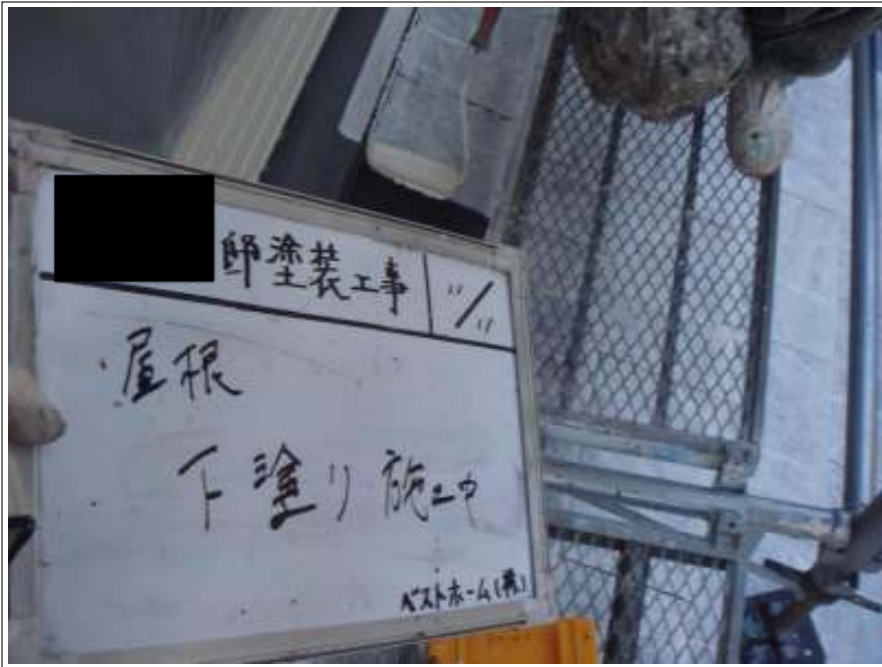 邸塗装工事 11/11
・屋根
下塗り施工中
ベストホーム(株)